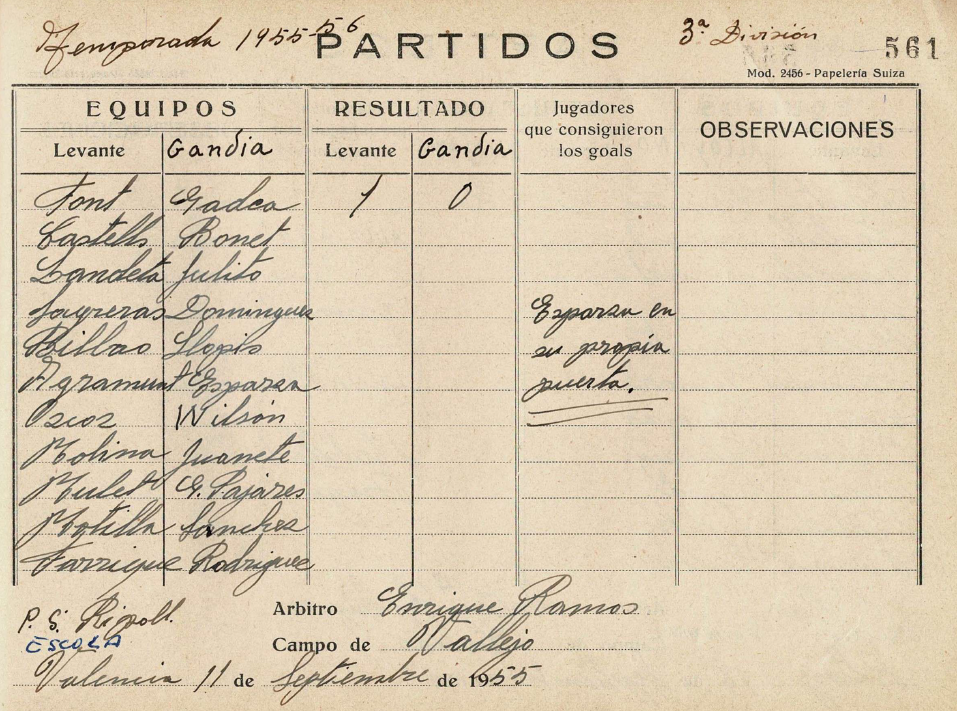 Temporada 1955-56 PARTIDOS 3ª División 561
Mod. 2456 - Papelería Suiza
EQUIPOS RESULTADO Jugadores que consiguieron los goals OBSERVACIONES
Levante Gandia Levante Gandia
Font Gadea 1 0
Castells Bonet
Landeta Julito
Sagreras Dominguez Esparza en
Bilbao Llopis su propia
Agramunt Esparza puerta.
Oscoz Wilsón
Molina Juanete
Mulet G. Pajares
Motilla Sanchez
Farrique Rodriguez
P. S. Ripoll. Arbitro Enrique Ramos
ESCOLA Campo de Vallejo
Valencia 11 de Septiembre de 1955